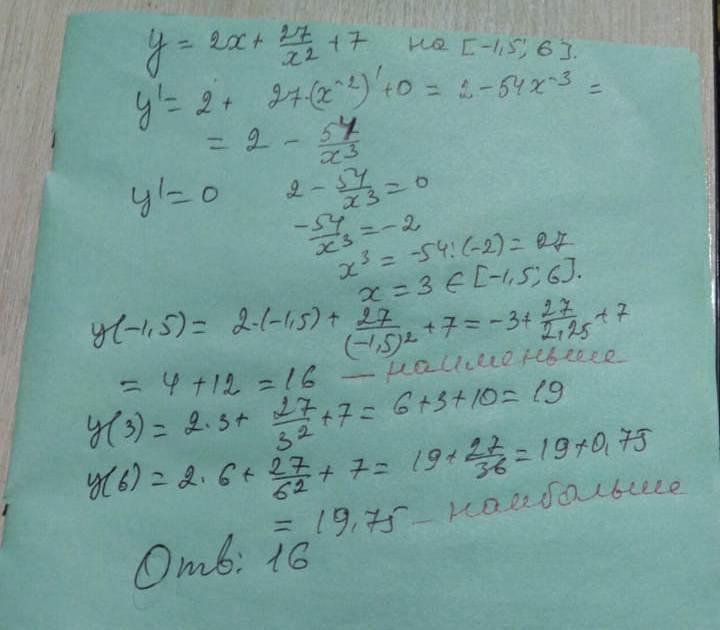 y = 2x + 27/x² + 7 на [-1,5; 6].
y' = 2 + 27·(x⁻²)' + 0 = 2 - 54x⁻³ =
= 2 - 54/x³
y' = 0 2 - 54/x³ = 0
-54/x³ = -2
x³ = -54:(-2) = 27
x = 3 ∈ [-1,5; 6].
y(-1,5) = 2·(-1,5) + 27/(-1,5)² + 7 = -3 + 27/2,25 + 7
= 4 + 12 = 16 — наименьше
y(3) = 2·3 + 27/3² + 7 = 6 + 3 + 10 = 19
y(6) = 2·6 + 27/6² + 7 = 19 + 27/36 = 19 + 0,75
= 19,75 — наибольше
Отв: 16